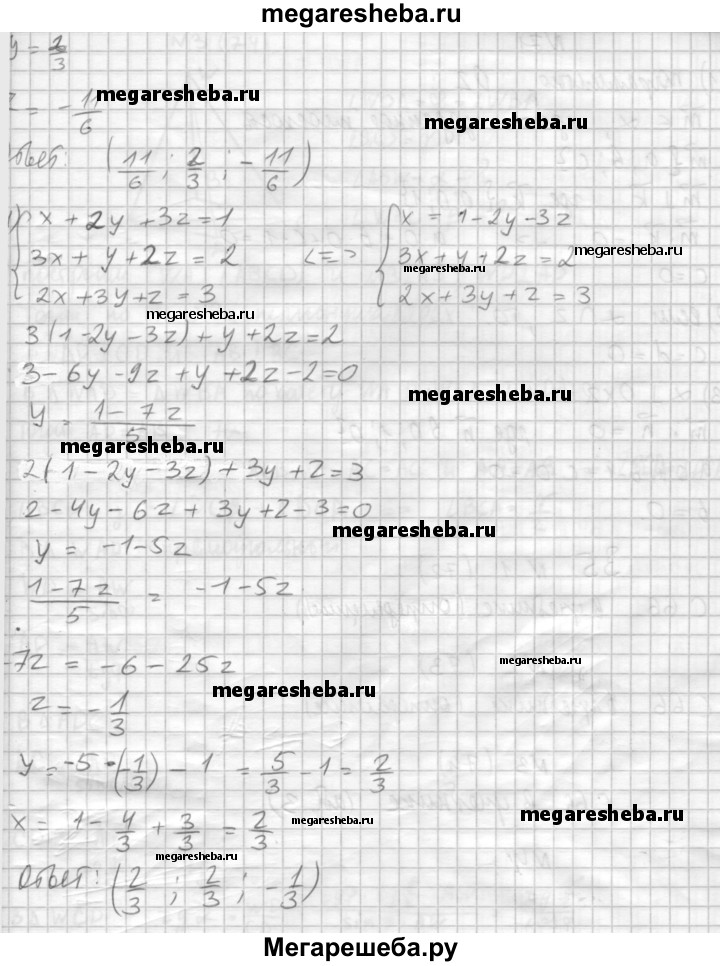 megaresheba.ru
y = 2/3
z = - 11/6
megaresheba.ru
megaresheba.ru
Ответ: (11/6 ; 2/3 ; - 11/6)
x + 2y + 3z = 1
3x + y + 2z = 2
2x + 3y + z = 3
<=>
x = 1 - 2y - 3z
3x + y + 2z = 2
2x + 3y + z = 3
megaresheba.ru
megaresheba.ru
megaresheba.ru
3(1 - 2y - 3z) + y + 2z = 2
3 - 6y - 9z + y + 2z - 2 = 0
megaresheba.ru
y = (1 - 7z)/5
megaresheba.ru
2(1 - 2y - 3z) + 3y + z = 3
2 - 4y - 6z + 3y + z - 3 = 0
megaresheba.ru
y = -1 - 5z
(1 - 7z)/5 = -1 - 5z
-7z = -6 - 25z
megaresheba.ru
megaresheba.ru
z = - 1/3
y = -5 · (-1/3) - 1 = 5/3 - 1 = 2/3
x = 1 - 4/3 + 3/3 = 2/3
megaresheba.ru
megaresheba.ru
megaresheba.ru
Ответ: (2/3 ; 2/3 ; - 1/3)
Мегарешеба.ру